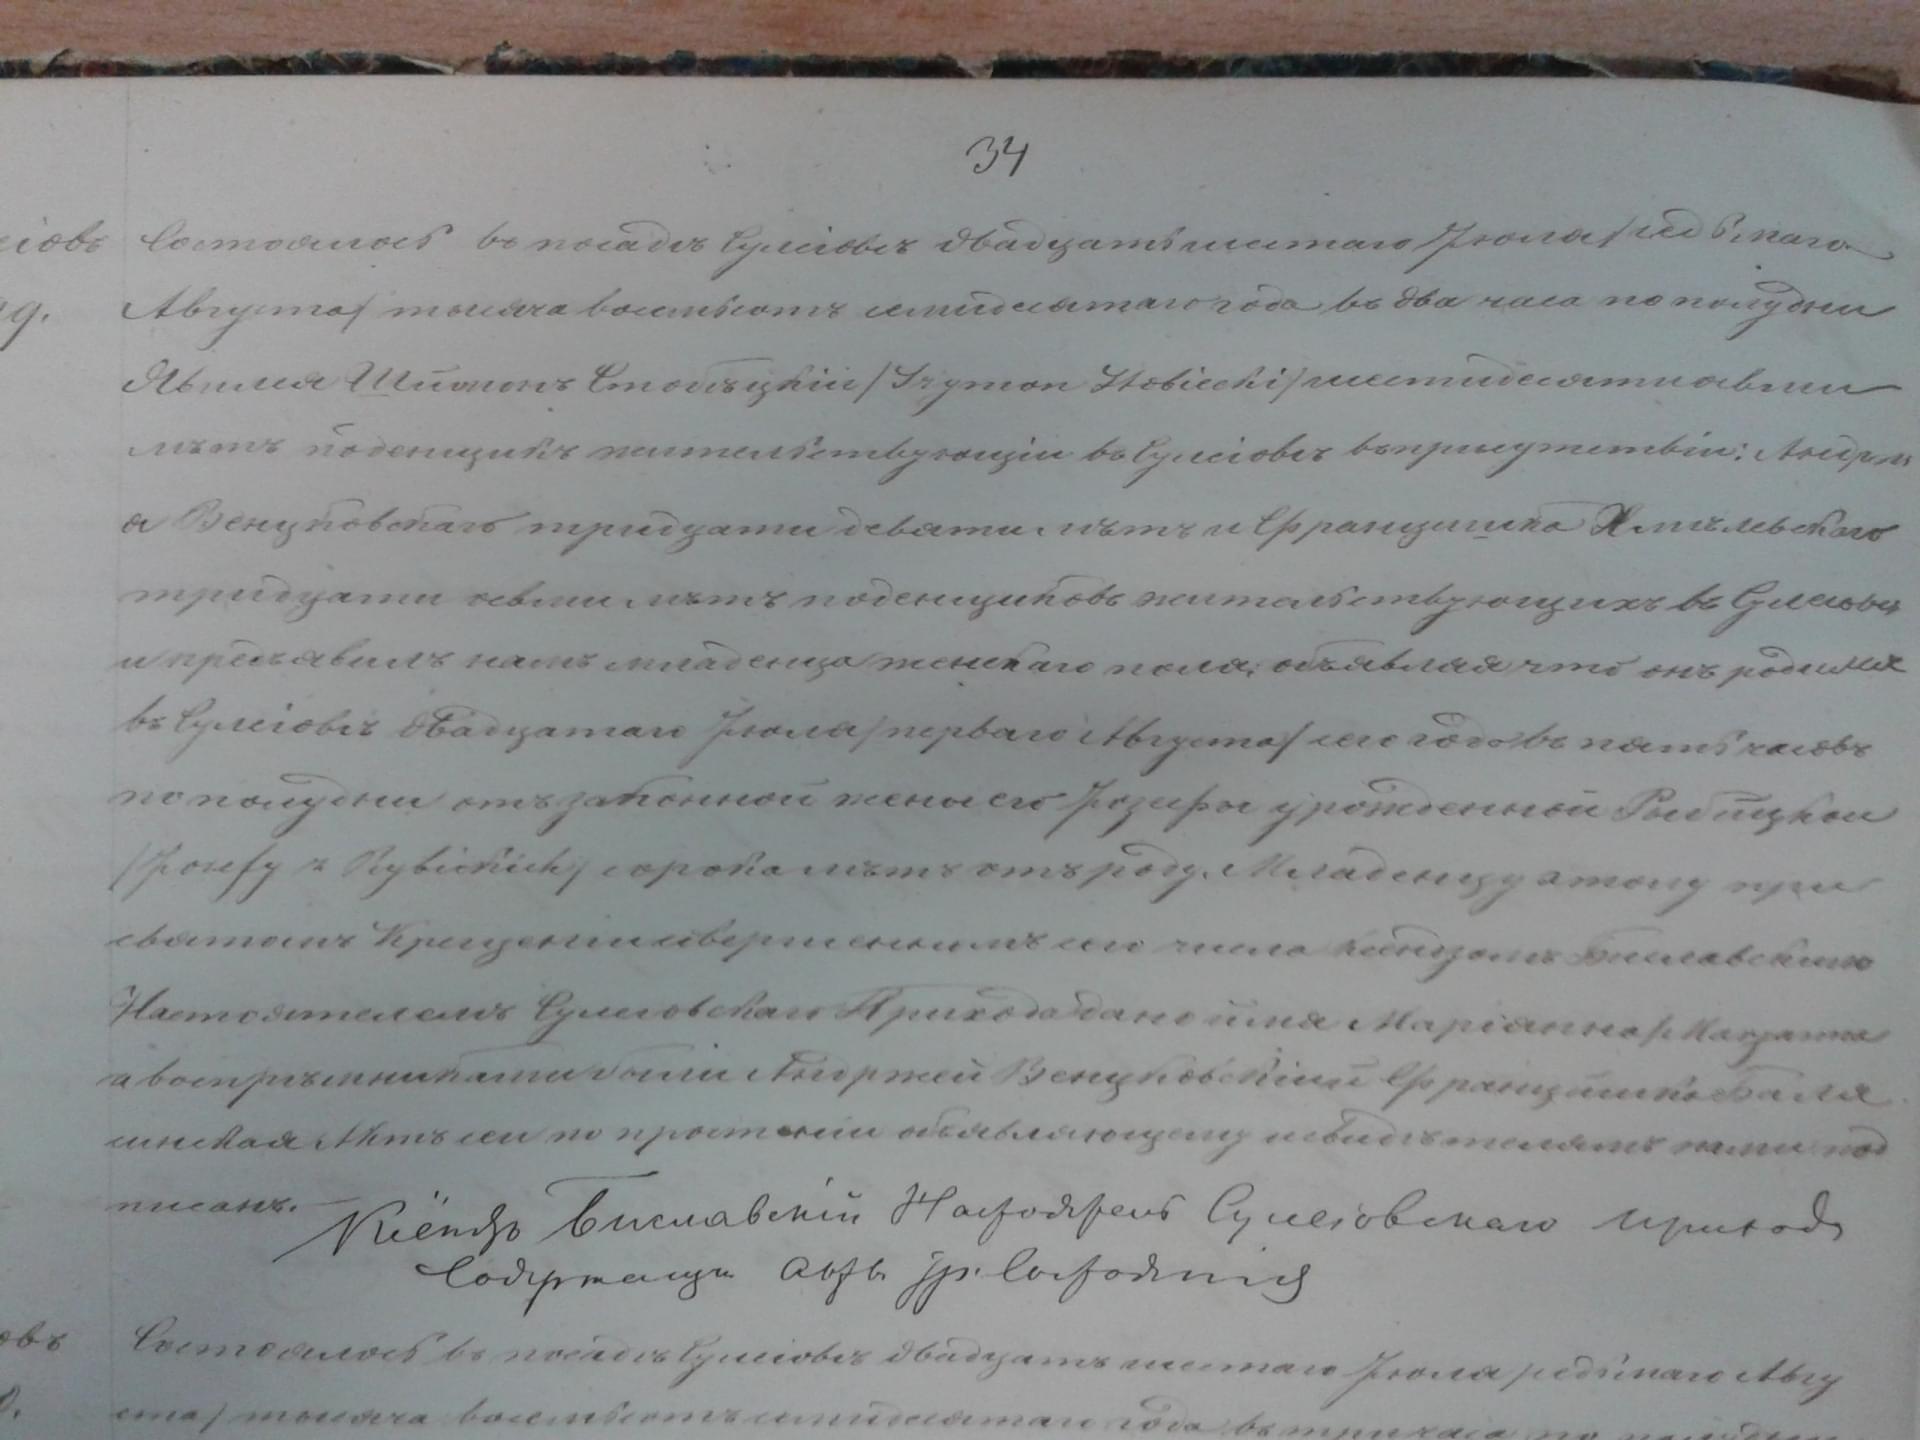 34
Состоялось въ посадѣ Сулеіовѣ двадцать шестаго Іюля / седьмаго
Августа / тысяча восемьсотъ семидесятаго года въ два часа по полудни
Явился Шимонъ Стобѣцкій / Szymon Stobiecki / шестидесяти осьми
лѣтъ поденщикъ жительствующій въ Сулеіовѣ въ присутствіи: Андрже
я Венцковскаго тридцати девяти лѣтъ и Францишка Хмѣлевскаго
тридцати осьми лѣтъ поденщиковъ жительствующихъ въ Сулеіовѣ
и предъявилъ намъ младенца женскаго пола, объявляя что онъ родился
въ Сулеіовѣ двадцатаго Іюля / перваго Августа / сего года въ пять часовъ
по полудни отъ законной жены его Іозефы урожденной Рыбицкой
/ Józefy z Rybickich / сорока лѣтъ отъ роду. Младенцу этому при
святомъ Крещеніи совершенномъ сего числа Ксендзомъ
Настоятелемъ Сулеіовскаго Прихода дано имя Маріанна / Maryanna
а воспріемниками были Андржей Венцковскій и Францишка
Актъ сей по прочтеніи объявляющему и свидѣтелямъ нами под
писанъ.
Ксёндзъ Настоятель Сулеіовскаго прихода
Содержащій акты гр. Состоянія
Состоялось въ посадѣ Сулеіовѣ двадцать шестаго Іюля / седьмаго Авгу
ста / тысяча восемьсотъ семидесятаго года въ три часа по полудни